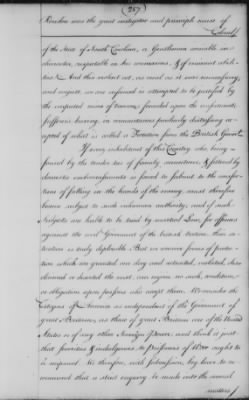 257
Burdon was the great instigator and principle cause of
of the State of South Carolina, a Gentleman amiable in
character, respectable in his connexions, & of eminent abilities.
And this violent act, as cruel as it was unnecessary
and unjust, we are informed is attempted to be justified by
the imputed crime of treason, founded upon the unfortunate
sufferers having, in circumstances peculiarly distressing
accepted of what is called a Protection from the British Govern
If every inhabitant of this Country who being
by the tender ties of family connections, & fettered by
domestic embarrassments is forced to submit to the misfortune
of falling in the hands of the enemy must therefore
become subject to such inhuman authority, and if such
subjects are liable to be tried by martial Law, for offences
against the civil Government of the british Nation, their
situation is truly deplorable. But we conceive forms of protection
which are granted one day and retracted, violated,
disowned or deserted the next, can enjoin no such conditions
or obligations upon persons who accept them. We consider the
Citizens of America as independent of the Government of
great Britain, as those of great Britain are of the United
States or of any other Sovereign Power, and think it just
that favorites & indulgences to Prisoners of War ought to
be . We therefore, with submission, beg leave to
recommend that a strict enquiry be made into the several
matters